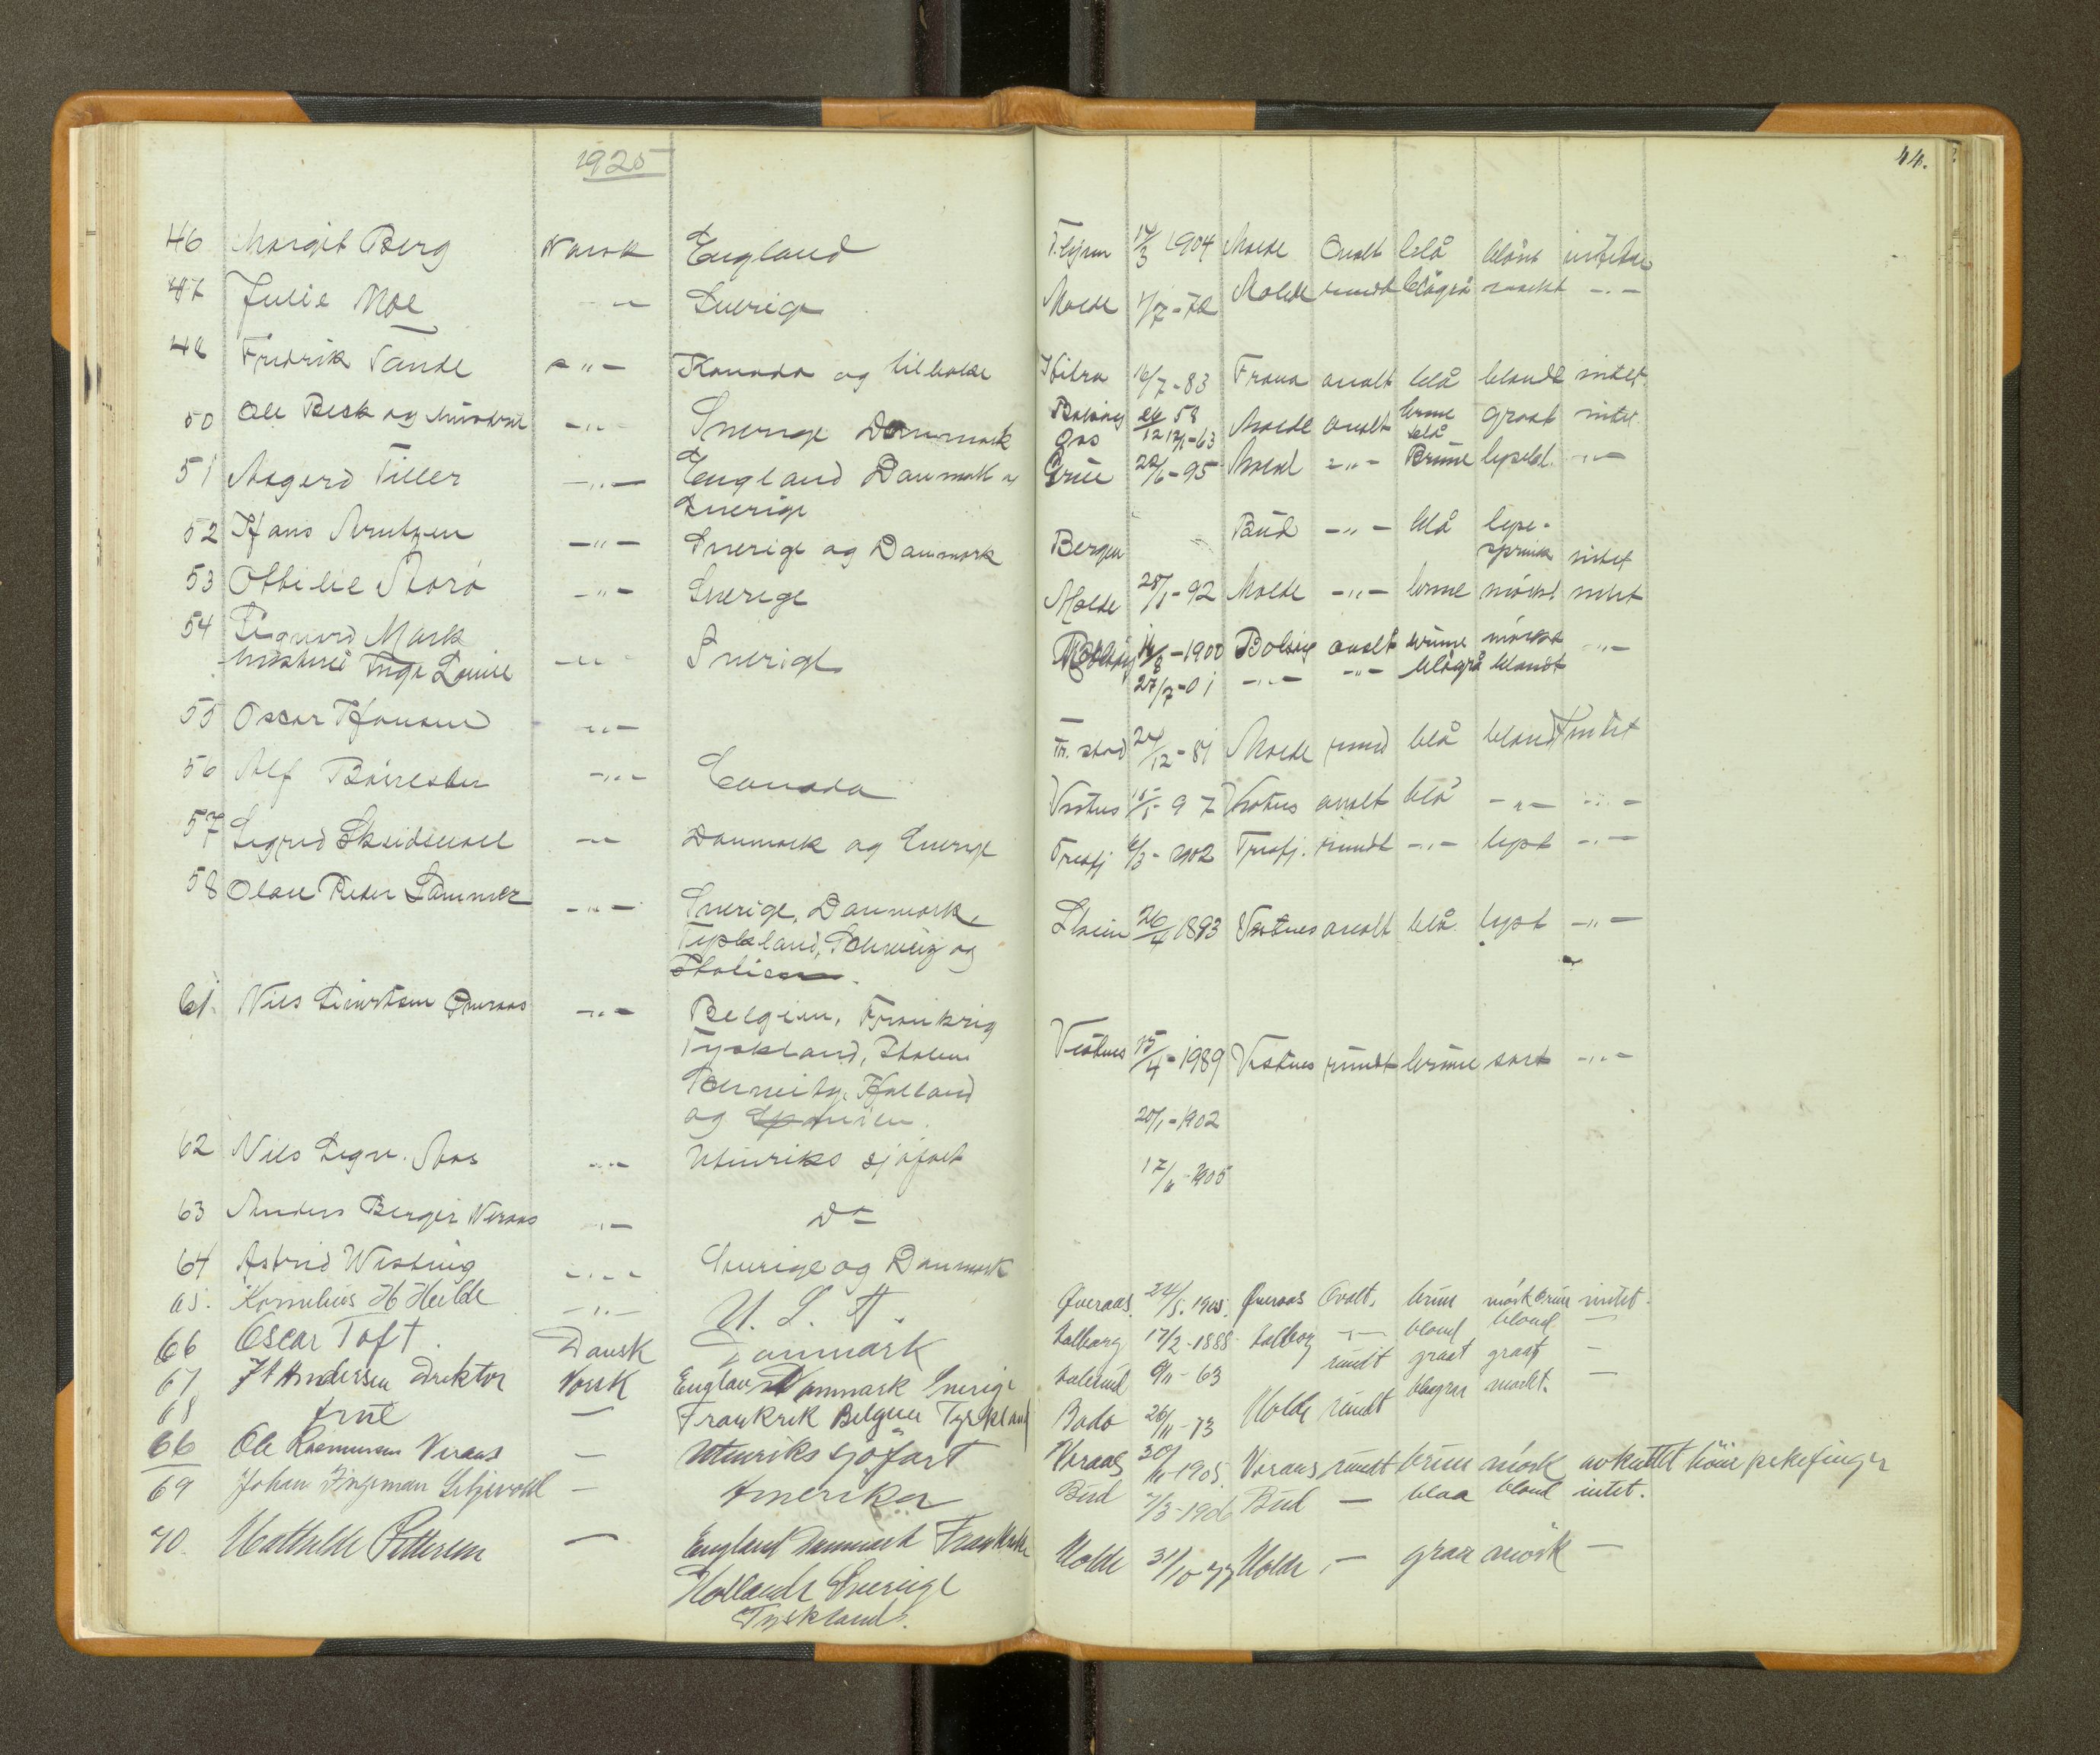 1925
44.
46 Margit Berg Norsk England 17/3 1904 Molde ovalt blå blånt
47 Julie Moe - " - Sverige Molde 1/7 - 72 Molde rundt blågrå mørkt - " -
48 Fredrik Sande - " - Kanada og tilbake Hitra 16/7 - 83 Frana ovalt blå blondt intet
50 Ole Beck og hustru - " - Sverige Danmark Bolsøy 58 Molde ovalt brune graat intet
12/1 - 63 blå
51 Aagerd Tiller - " - England Danmark og Grue 22/6 - 95 Molde - " - Brune lysebl. - " -
Sverige
52 Hans Arntzen - " - Sverige og Danmark Bergen Bud - " - blå lyse-
sprund intet
53 Ottilie Morø - " - Sverige Molde 28/1 - 92 Molde - " - brune mørkt intet
54 Sigurd Mork Bolsøy 16/8 - 1900 Bolsøy ovalt brune mørke - " -
hustru Inga Louise - " - Sverige 27/7 - 01 - " - - " - blågrå blondt
55 Oscar Hansen - " - Tr. stad 24/12 - 81 Molde rund blå blondt intet
56 Alf - " - Canada Vestnes 15/5 97 Vestnes ovalt blå - " - - " -
57 Sigrid Skeidsvoll - " - Danmark og Sverige Tresfj 6/3 - 1902 Tresfj. rundt - " - lyst - " -
58 Olav Peder Sammer - " - Sverige, Danmark, Skien 26/4 1893 Vestnes ovalt blå lyst - " -
Tyskland, Schweiz og
Italien.
61. Nils Sivertsen Øveraas - " - Belgien, Frankrig
Tyskland, Italien Vestnes 15/4 - 1989 Vestnes rundt brune sort - " -
Schweitz, Holland
og Spanien. 20/1 - 1902
62 Nils Sigv. Aas - " - Utenriks sjøfart 17/6 - 1905
63 Anders Berger Veraas - " - Do
64 Astrid Wisting - " - Sverige og Danmark
65. Kornelius H Heilde - " - U. S. A. Øveraas 24/5. 1905. Øveraas Ovalt. brun mørk brun intet.
66 Oscar Toft. Dansk Danmark Aalborg 17/2 - 1888 Aalborg - " - bloud bloud -
67 Andersen Direktør Norsk England Danmark Sverige Aalesund 9/11 - 63 rundt graat graat -
68 frue - Frankrik Belgien Tyskland Bodø 26/11 - 73 Molde rundt blaagraa mørkt. -
66 Ole Rasmussen Veraas - Utenriks sjøfart Veraas 30/11 - 1905. Veraas rundt brun mørk avkuttet höire pekefinger
69 Johan Ingeman Seljevold - Amerika Bud 7/3 - 1906 Bud - blaa blond intet.
70 Mathilde Pettersen - England Danmark Frankrike Molde 31/10 - 77 Molde - graa mörk -
Hollande Sverige
Tyskland.